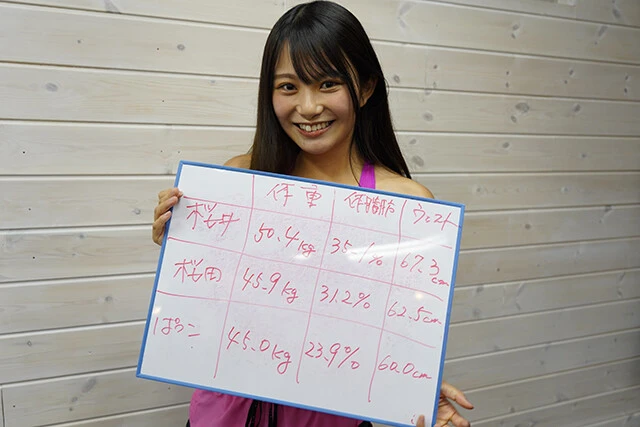 体重 体脂肪 ウエスト
桜井 50.4kg 35.1% 67.3cm
桜田 45.9kg 31.2% 62.5cm
ぱっこ 45.0kg 23.9% 60.0cm